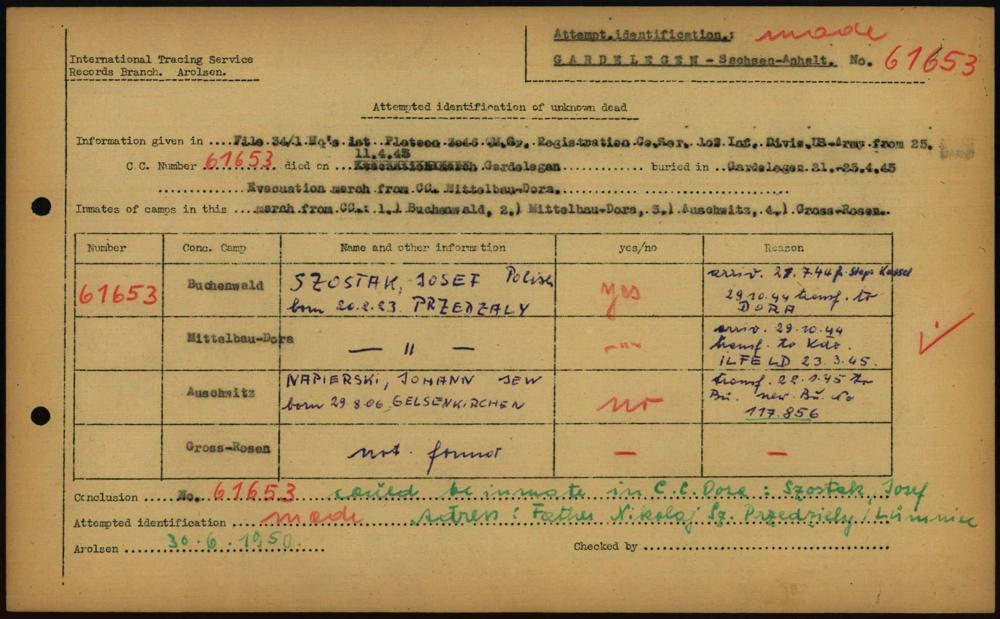 Attempt.identification.: made
International Tracing Service
Records Branch. Arolsen.
GARDELEGEN - Sachsen-Anhalt. No. 61653
Attempted identification of unknown dead
Information given in ....File 34/1 Hq's 1st Platoon 3046 QM.Gr. Registration Co.Ser. 102 Inf. Divis. US-Army from 25.
11.4.45
C.C. Number 61653 died on Gardelegen buried in ..Gardelegen 21.-25.4.45
Evacuation march from CC. Mittelbau-Dora.
Inmates of camps in this ...march from CC.: 1.) Buchenwald, 2.) Mittelbau-Dora, 3.) Auschwitz, 4.) Gross-Rosen.
Number Conc. Camp Name and other information yes/no Reason
61653 Buchenwald SZOSTAK, JOSEF Polish born 20.2.23. PRZEDZALY yes arriv. 27.7.44 f. Stapo Kassel 29.10.44 transf. to DORA
Mittelbau-Dora — " — —""— arriv. 29.10.44 transf. to Kdo. ILFELD 23.3.45.
Auschwitz NAPIERSKI, JOHANN JEW born 29.8.06 GELSENKIRCHEN no transf. 22.1.45 to Bu. new. Bu. No 117.856
Gross-Rosen not. found — —
Conclusion .... No. 61653 could be inmate in C.C. Dora : Szostak, Josef
Attempted identification ... made Adress : Father Nikolaj Sz. Przedziely /
Arolsen ... 30.6.1950. Checked by